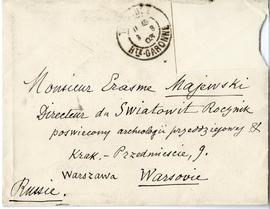 Hte-GARONNE
Monsieur Erasme Majewski
Directeur du Światowit Rocznik
poświęcony archeologii przedziejowej &
Krak.-Przedmieście, 9.
Warszawa Warsovie
Russie.